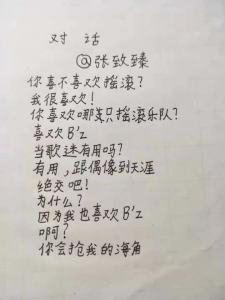 对 话
@张致臻
你喜不喜欢摇滚?
我很喜欢!
你喜欢哪支只摇滚乐队?
喜欢B'z
当歌迷有用吗?
有用,跟偶像到天涯
绝交吧!
为什么?
因为我也喜欢B'z
啊?
你会抢我的海角